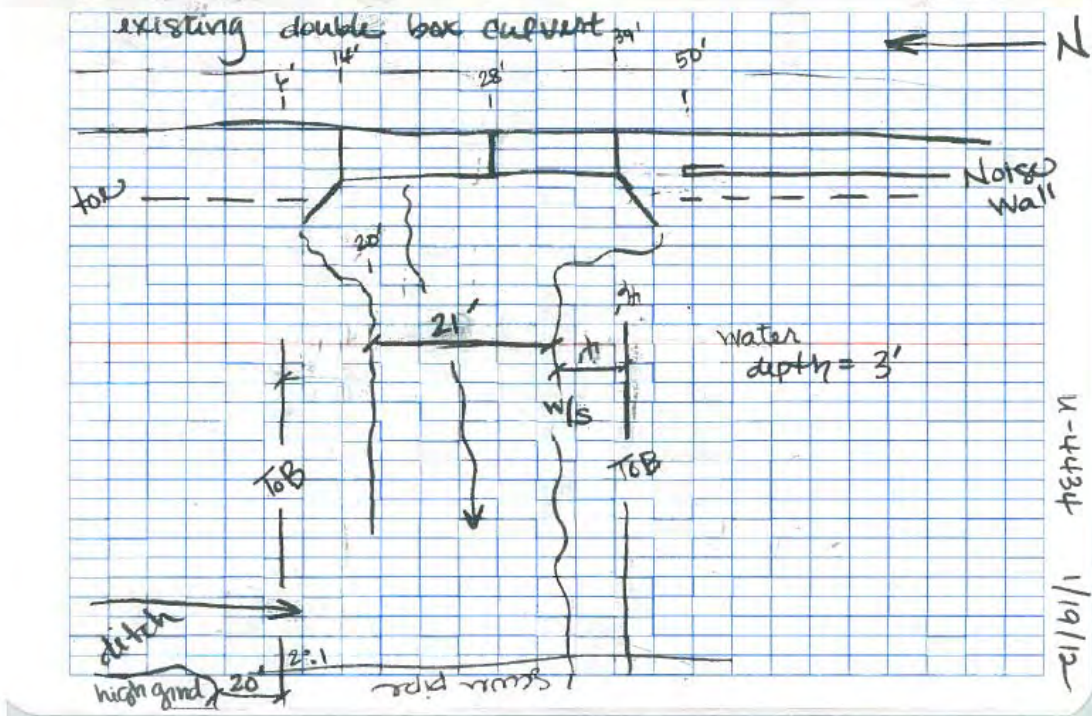 existing double box culvert
14'
28'
39'
50'
N
toe
Noise
Wall
20'
21'
water
depth = 3'
w/s
ToB
ToB
ditch
2:1
high grnd
20'
sewer pipe
U-4434 1/19/12